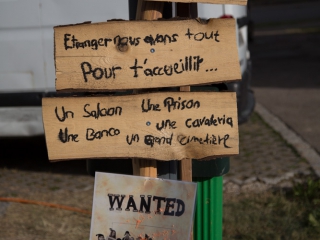 Etranger nous avons tout
Pour t'accueillir...
Un Saloon Une Prison
une cavalerie
Une Banco un grand cimetière
WANTED